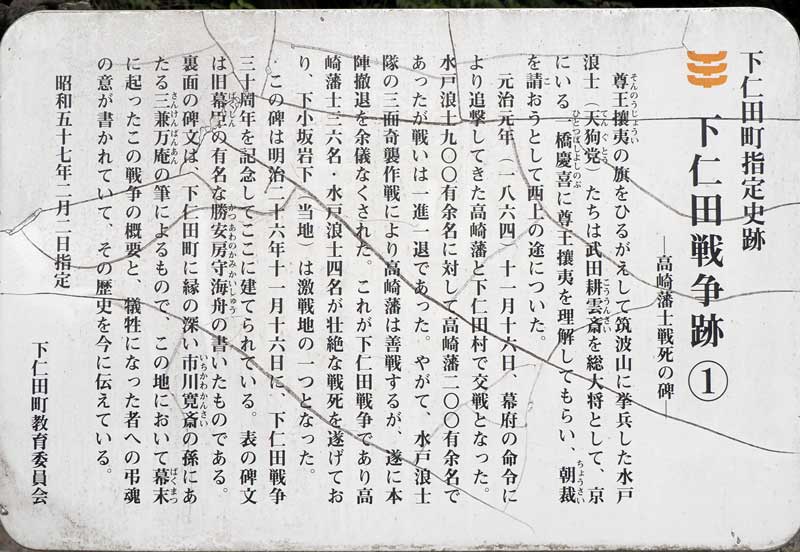 下仁田町指定史跡
下仁田戦争跡①
―高崎藩士戦死の碑―
尊王攘夷の旗をひるがえして筑波山に挙兵した水戸
浪士（天狗党）たちは武田耕雲斎を総大将として、京
にいる一橋慶喜に尊王攘夷を理解してもらい、朝裁
を請おうとして西上の途についた。
元治元年（一八六四）十一月十六日、幕府の命令に
より追撃してきた高崎藩と下仁田村で交戦となった。
水戸浪士九〇〇有余名に対して高崎藩二〇〇有余名で
あったが戦いは一進一退であった。やがて、水戸浪士
隊の三面奇襲作戦により高崎藩は善戦するが、遂に本
陣撤退を余儀なくされた。これが下仁田戦争であり高
崎藩士三六名・水戸浪士四名が壮絶な戦死を遂げてお
り、下小坂岩下（当地）は激戦地の一つとなった。
この碑は明治二十六年十一月十六日に、下仁田戦争
三十周年を記念してここに建てられている。表の碑文
は旧幕臣の有名な勝安房守海舟の書いたものである。
裏面の碑文は、下仁田町に縁の深い市川寛斎の孫にあ
たる三兼万庵の筆によるもので、この地において幕末
に起ったこの戦争の概要と、犠牲になった者への弔魂
の意が書かれていて、その歴史を今に伝えている。
昭和五十七年二月二日指定
下仁田町教育委員会